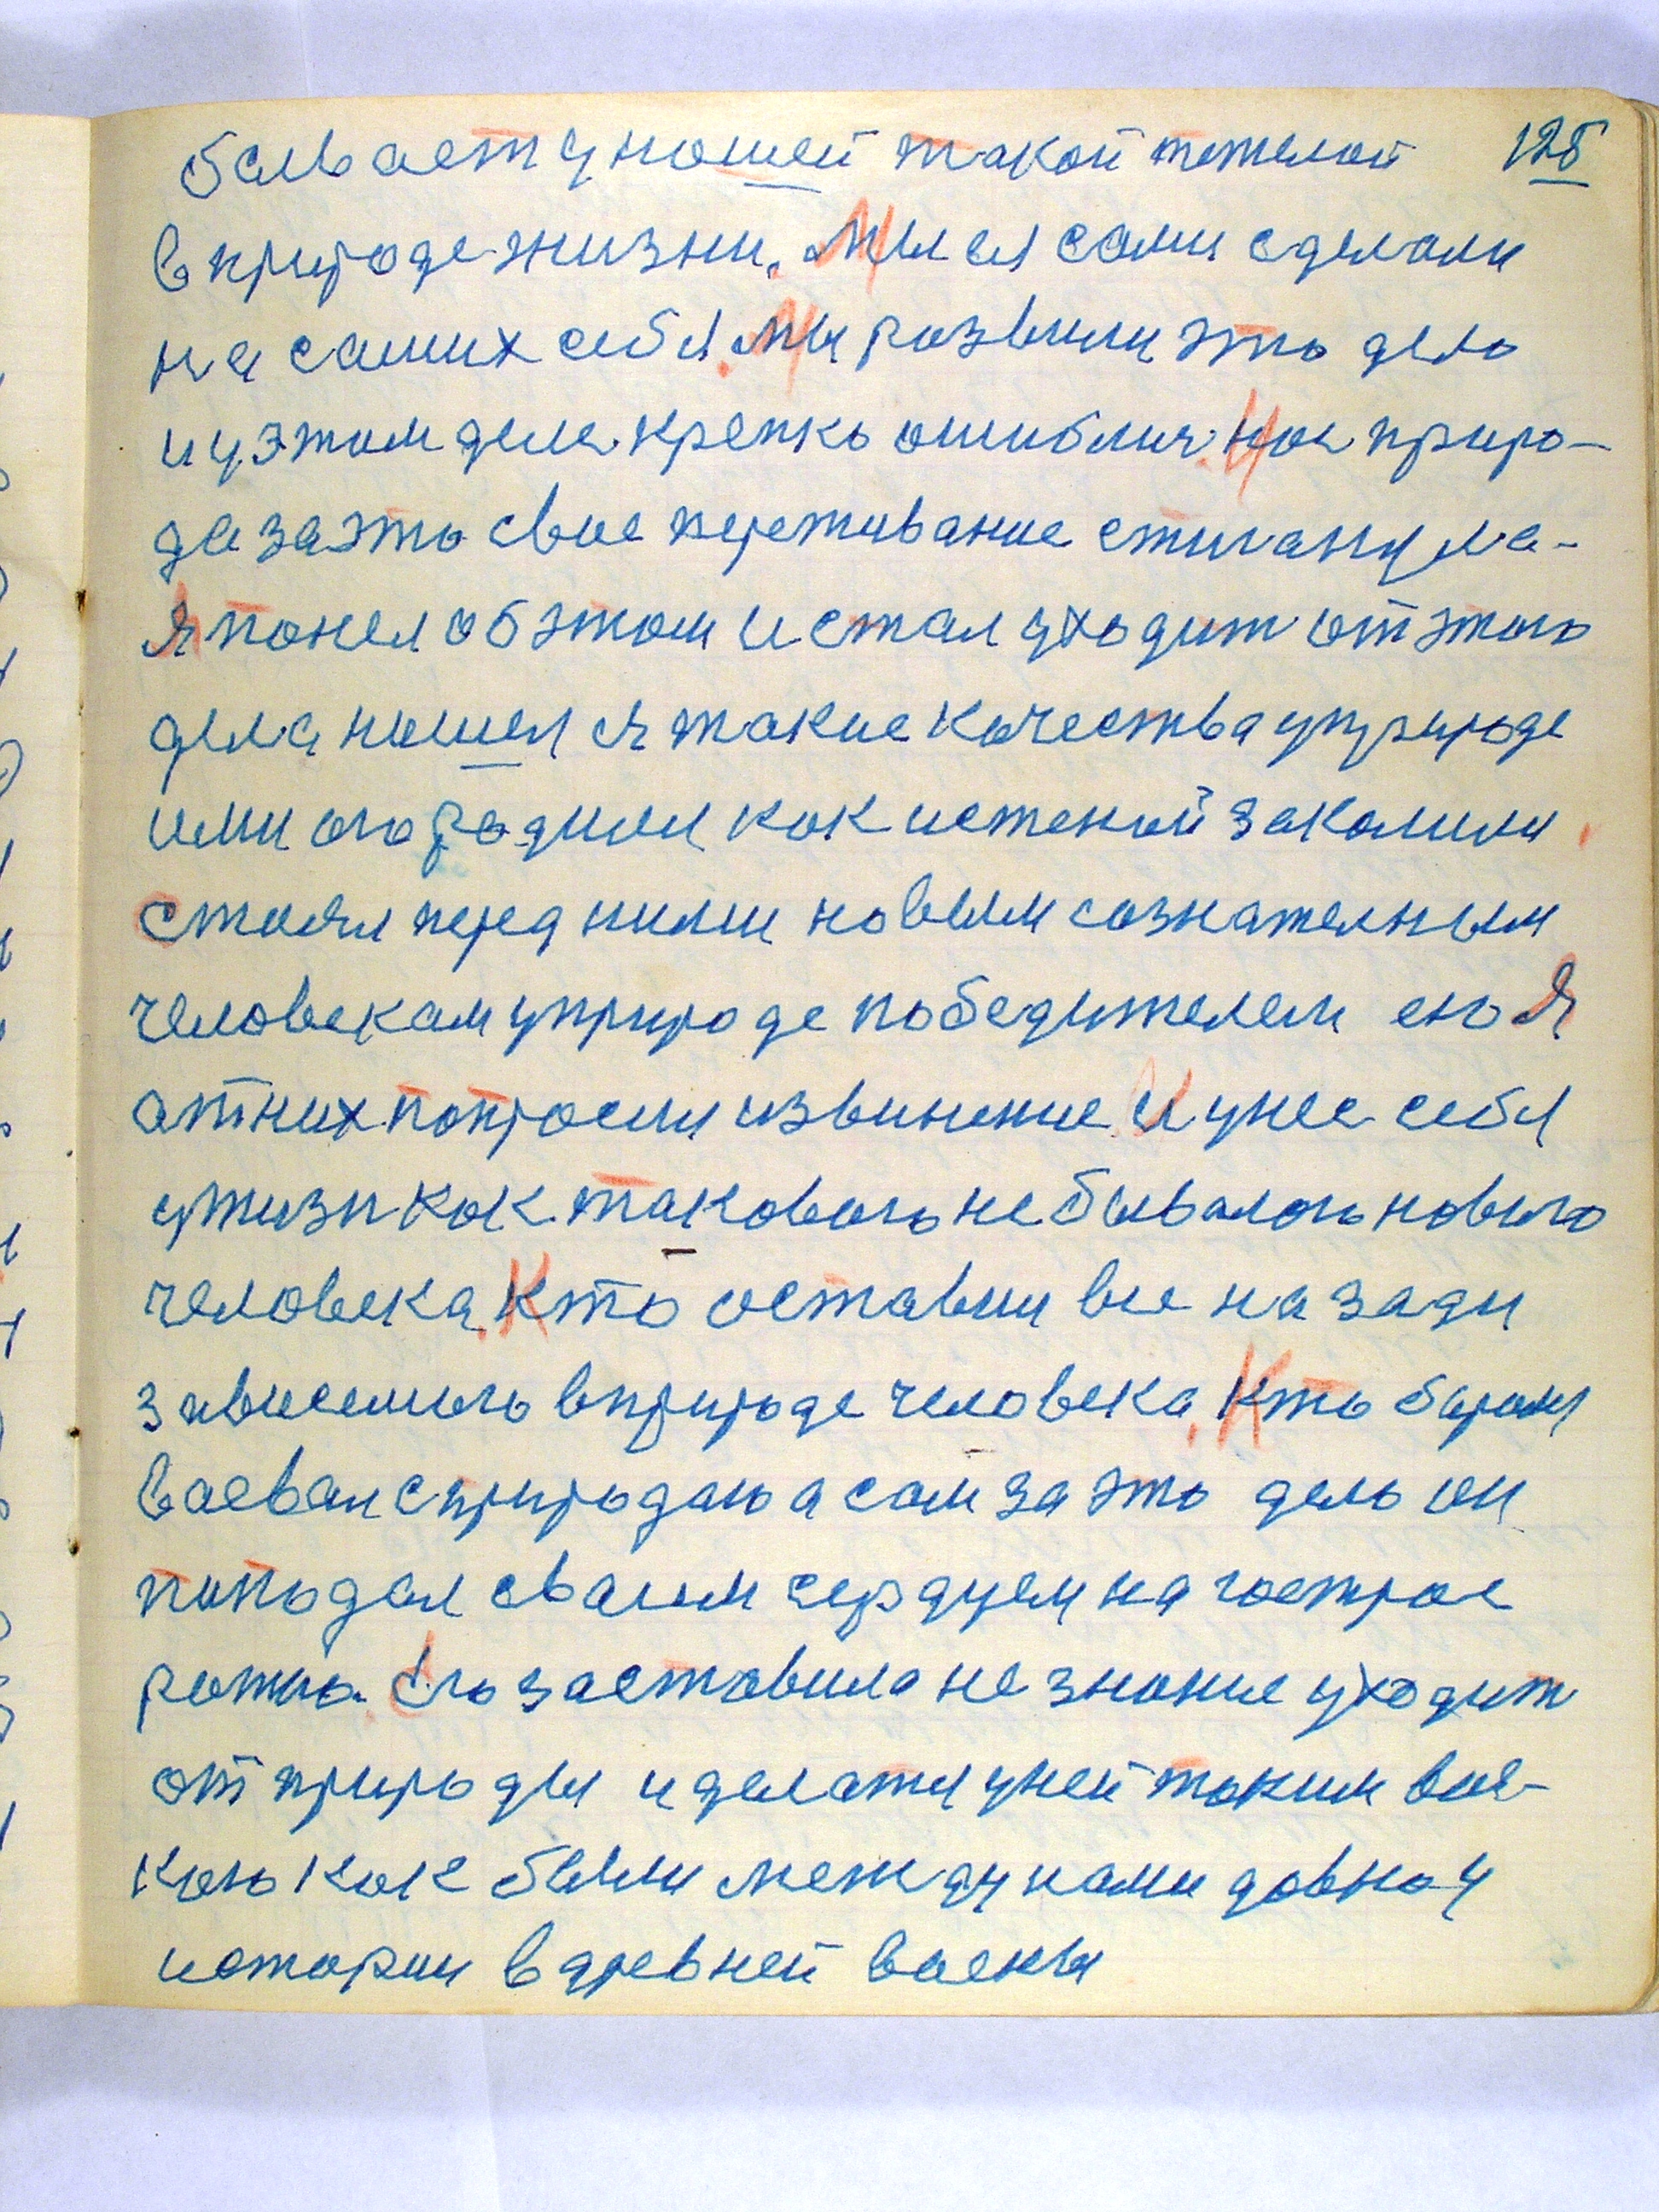 бывает у нашей такой тежелой 125
в природе жизни. Мы ея сами сделали
на самих себя. Мы розвили это дело
и у этом деле крепко ошиблис. Нос приро-
да за это свое переживание стиганула-
Я понел об этом и стал уходит от этого
дела нашел я такие качества у природе
ими огородил как истеной закалили
стоял перед ними новым сознателным
человекам у природе победителем его Я
от них попросил извинение И у нее себя
ужизн как такового небывалого нового
человека. Кто оставил вне на зади
зависемого в природе человека. Кто
воевал с природаю а сам за это дело он
поподал сваим сердцем на гострое
рожно. Его заставила не знание уходит
от природы и делатя у ней таким
как были между нами давно у
истории в древней